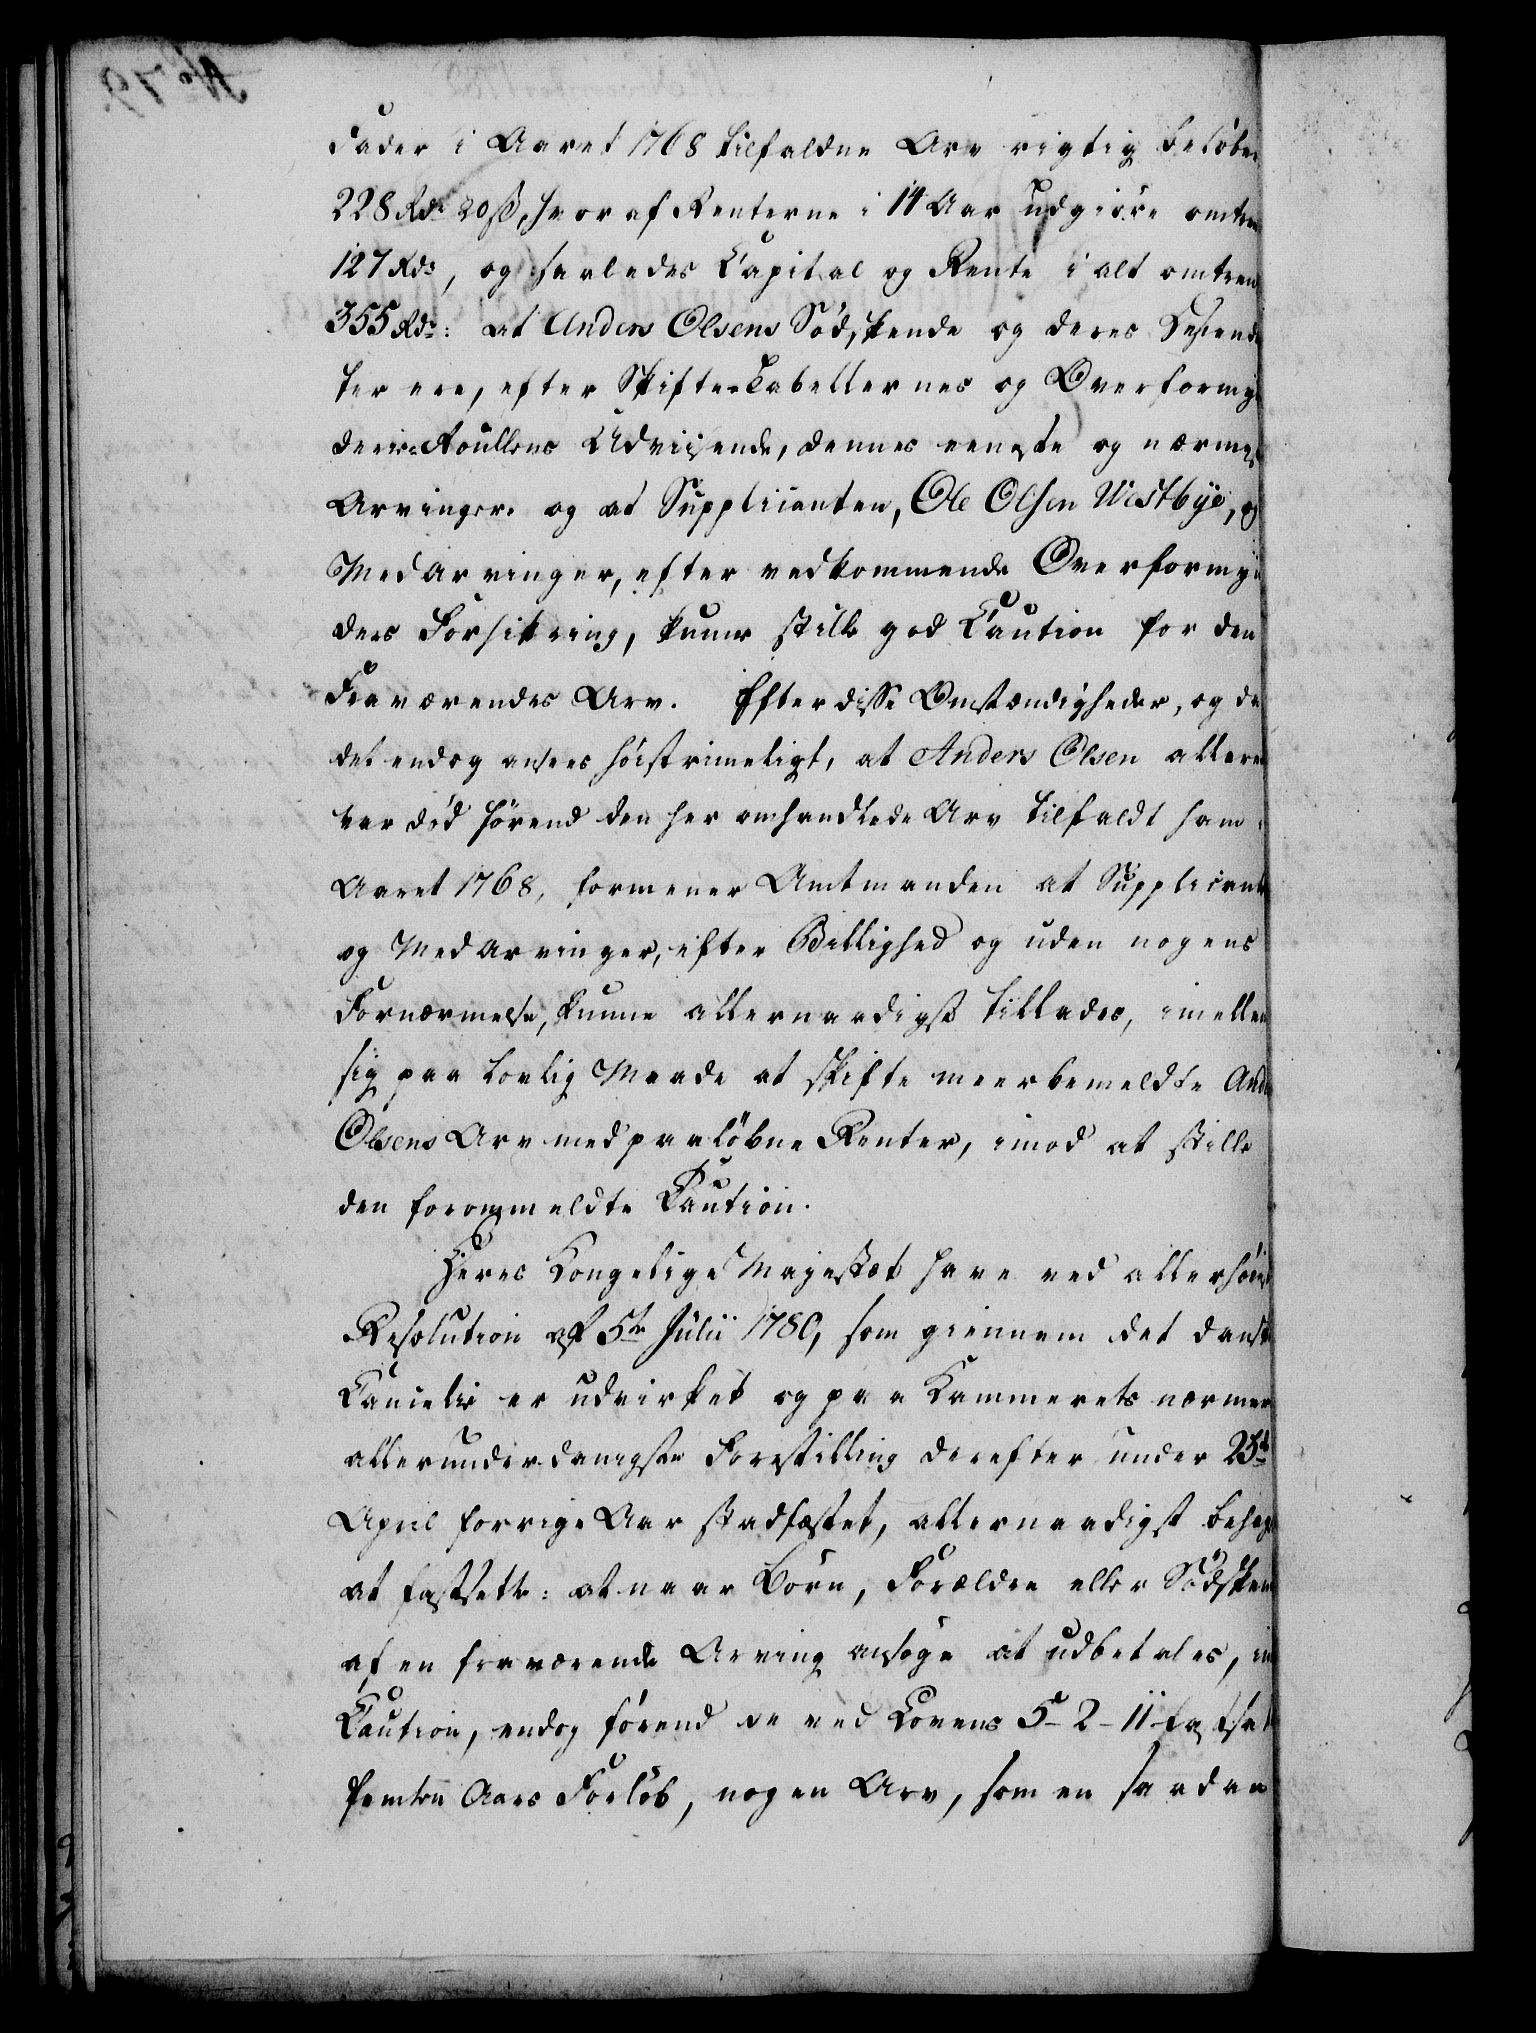 Fader i Aaret 1768 tilfaldne Arv rigtig beløber
228 Rdr 20 ß, hvoraf Renterne i 14 Aar udgiøre omtren
127 Rdr, og saaledes Capital og Rente i alt omtren
355 Rdr: at Anders Olsens Södskende og deres Descenden
ter ere, efter Skifte-Tabellernes og Overformyn
derie-Roullens Udviisende, dennes eeneste og nærmes
Arvinger. og at Supplicanten, Ole Olsen Westbye, og
Medarvinger, efter vedkommende Overformyn
ders Forsikring, kunne stille god Caution for den
Fraværendes Arv. Efter disse Omstændigheder, og da
det endog ansees høistrimeligt, at Anders Olsen allere
var død førend den her omhandlede Arv tilfaldt ham i
Aaret 1768, formener Amtmanden at Supplicante
og Medarvinger, efter Billighed og uden nogens
Fornærmelse, kunne allernaadigst tillades, imellem
sig paa lovlig Maade at skifte meerbemeldte Ande
Olsens Arv med paaløbne Renter, imod at stille
den forommeldte Caution.
Deres Kongelige Majestæt have ved allerhøiest
Resolution af 5te Julii 1780, som giennem det danske
Cancelie er udvirket og paa Kammerets nærmer
allerunderdanigste Forestilling derefter under 25de
April forrige Aar stadfæstet, allernaadigst behag
at fastsette: at naar Børn, Forældre eller Södsken
af en fraværende Arving ansøge at udbetales, im
Caution, endog førend de ved Lovens 5-2-11 fastsat
femten Aars Forløb, nogen Arv, som en saadan